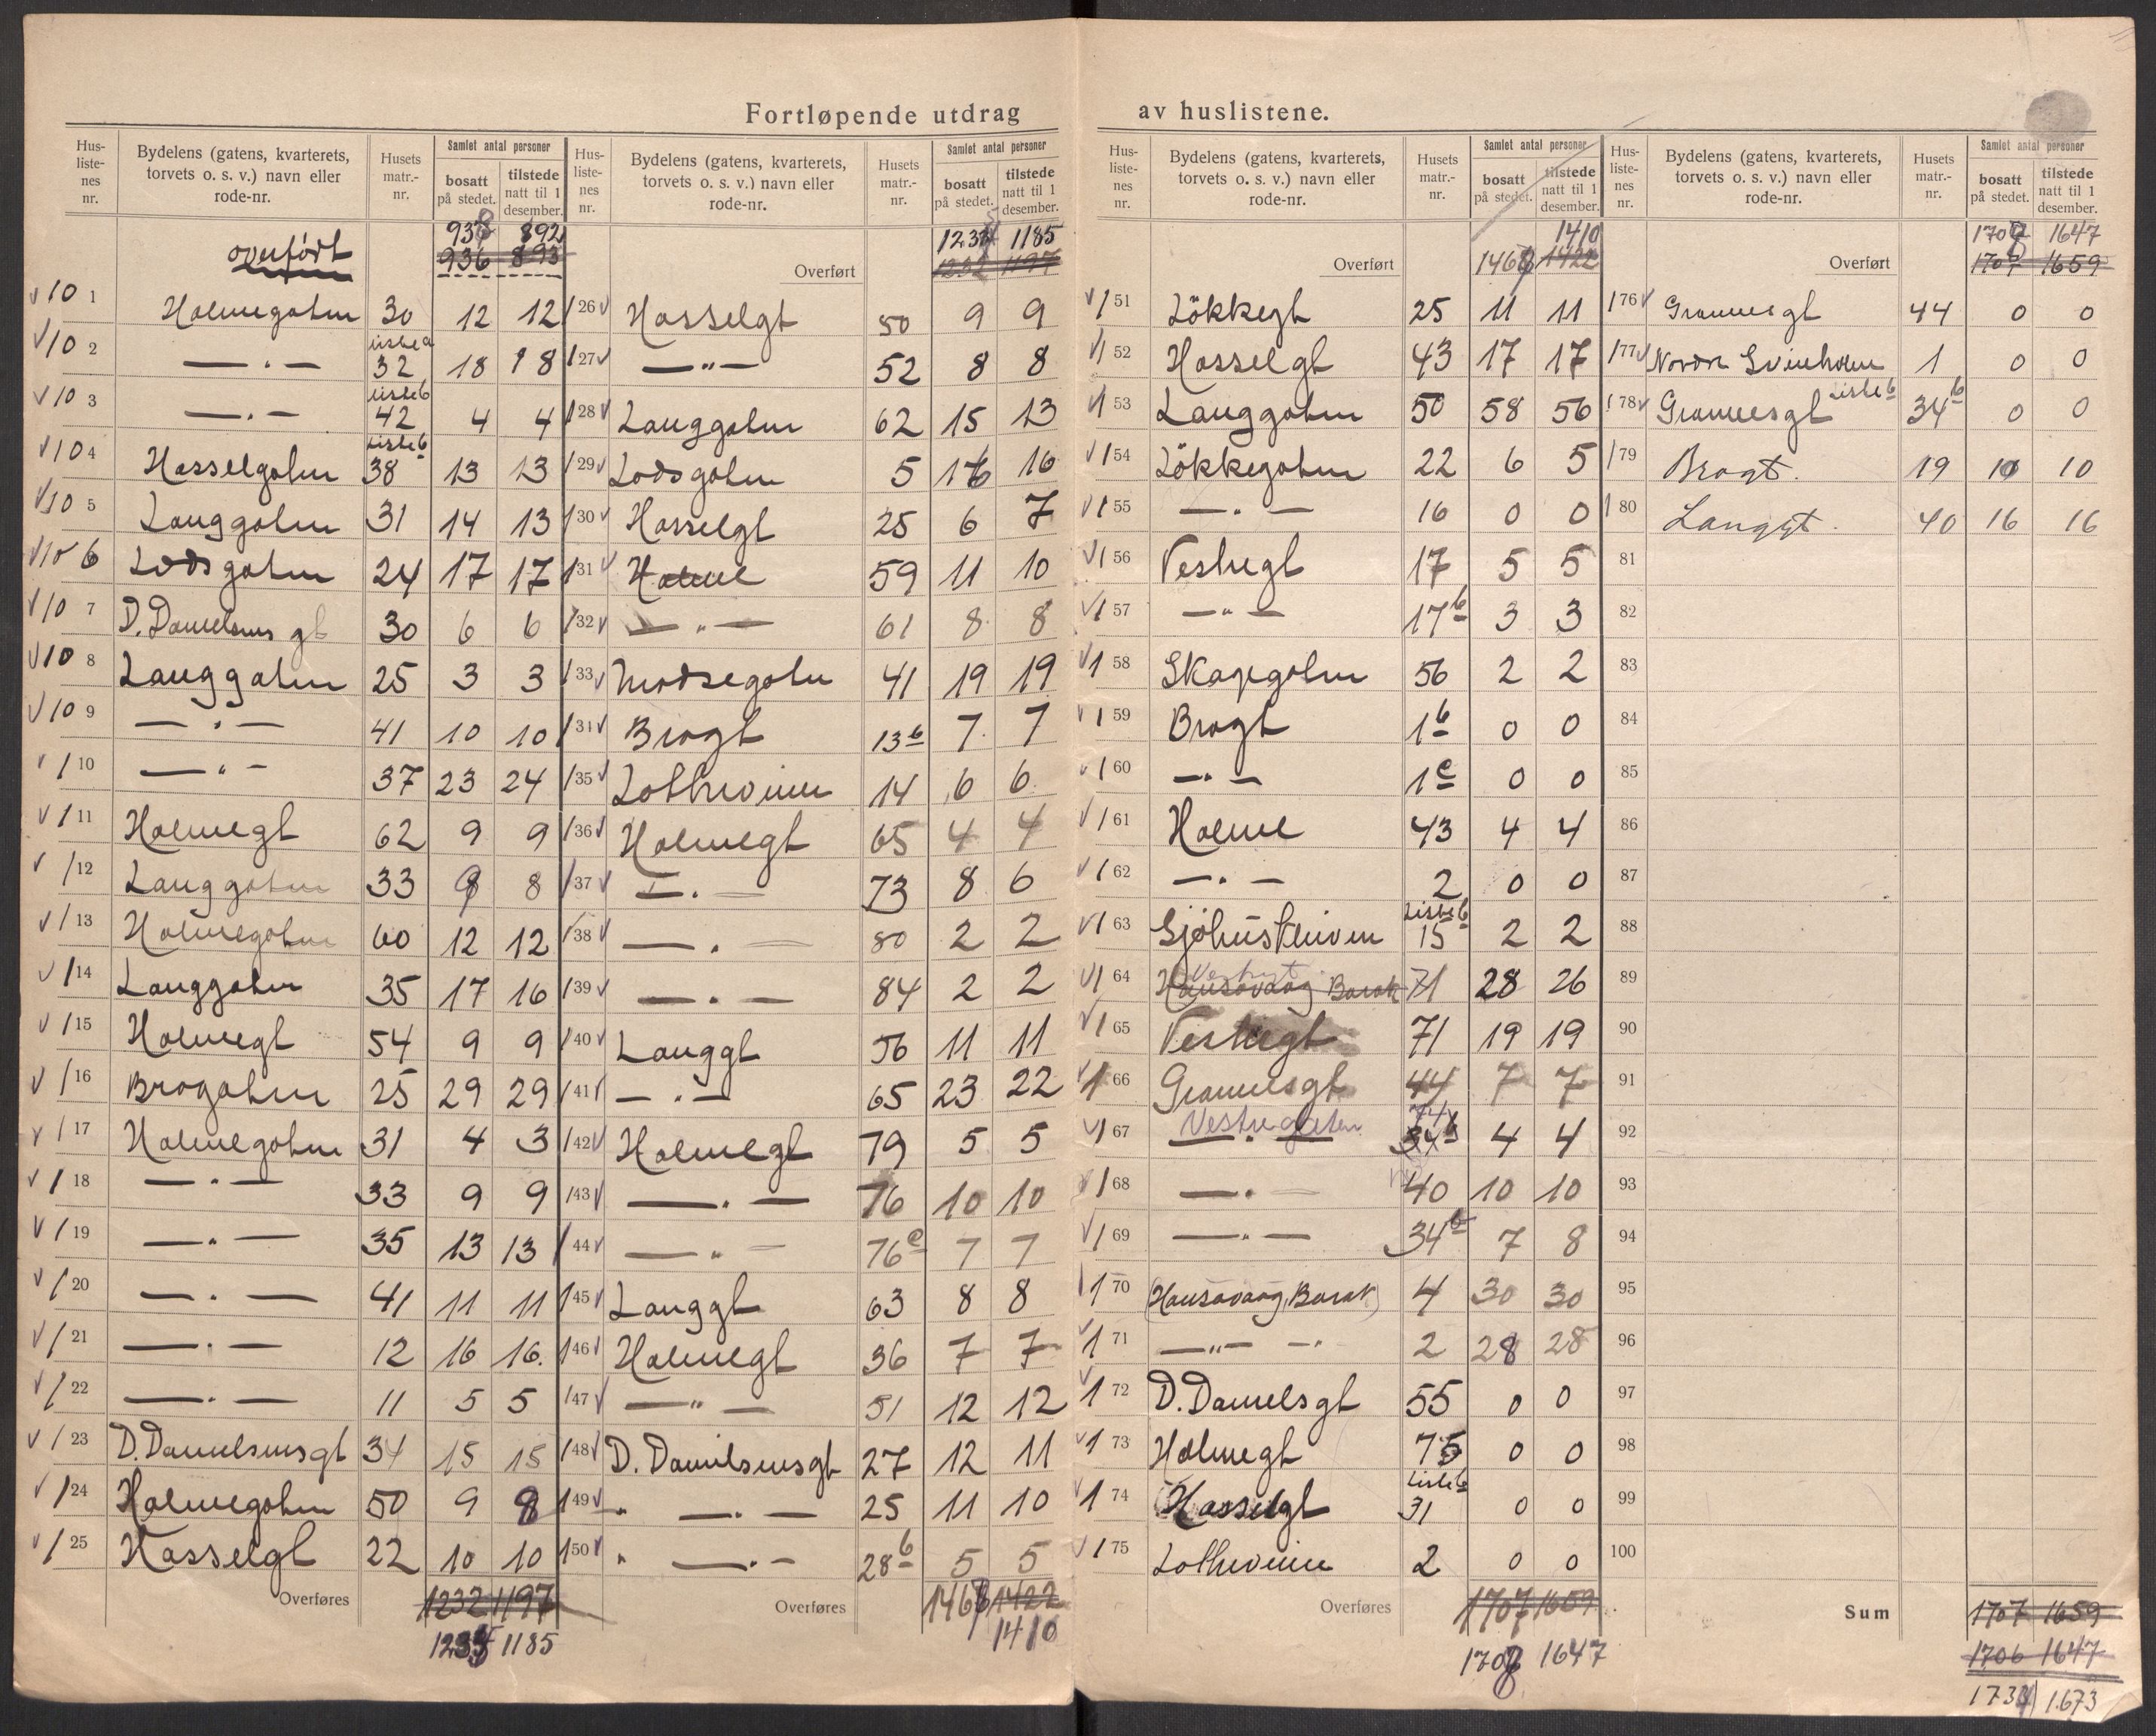 Fortløpende utdrag av huslistene.
Hus-liste-nes nr. | Bydelens (gatens, kvarterets, torvets o. s. v.) navn eller rode-nr. | Husets matr.-nr. | Samlet antal personer | bosatt på stedet. | tilstede natt til 1 desember.
overført 938 892
936 893
10 1 Holmegaten 30 12 12
Liste a
10 2 — . — 32 18 18
Liste b
10 3 — . — 42 4 4
Liste b
10 4 Hasselgaten 38 13 13
10 5 Langgaten 31 14 13
10 6 Lodsgaten 24 17 17
10 7 D. Danielsens gt 30 6 6
10 8 Langgaten 25 3 3
10 9 — . — 41 10 10
1 10 — " — 37 23 24
1 11 Holmegt 62 9 9
1 12 Langgaten 33 8 8
1 13 Holmegaten 60 12 12
1 14 Langgaten 35 17 16
1 15 Holmegt 54 9 9
1 16 Brogaten 25 29 29
1 17 Holmegaten 31 4 3
1 18 — . — 33 9 9
1 19 — . — 35 13 13
1 20 — . — 41 11 11
1 21 — . — 12 16 16.
1 22 — . — 11 5 5
1 23 D. Danielsensgt 34 15 15
1 24 Holmegaten 50 9 8
1 25 Hasselgt 22 10 10
Overføres 1232 1197
1235 1185
Hus-liste-nes nr. | Bydelens (gatens, kvarterets, torvets o. s. v.) navn eller rode-nr. | Husets matr.-nr. | Samlet antal personer | bosatt på stedet. | tilstede natt til 1 desember.
1185
Overført 1232 1197
1 26 Hasselgt 50 9 9
1 27 — " — 52 8 8
1 28 Langgaten 62 15 13
1 29 Lodsgaten 5 16 16
1 30 Hasselgt 25 6 7
1 31 Holme 59 11 10
1 32 — " — 61 8 8
1 33 41 19 19
1 34 Brogt 13b 7 7
1 35 14 6 6
1 36 Holmegt 65 4 4
1 37 — . — 73 8 6
1 38 — . — 80 2 2
1 39 — . — 84 2 2
1 40 Langgt 56 11 11
1 41 — . — 65 23 22
1 42 Holmegt 79 5 5
1 43 — . — 76 10 10
1 44 — " — 76c 7 7
1 45 Langgt 63 8 8
1 46 Holmegt 36 7 7
1 47 — " — 51 12 12
1 48 D. Danielsensgt 27 12 11
1 49 " — . — 25 11 10
1 50 " — . — 28b 5 5
Overføres 1468 1422
1410
Hus-liste-nes nr. | Bydelens (gatens, kvarterets, torvets o. s. v.) navn eller rode-nr. | Husets matr.-nr. | Samlet antal personer | bosatt på stedet. | tilstede natt til 1 desember.
1410
Overført 1468 1422
1 51 Lökkegt 25 11 11
1 52 Hasselgt 43 17 17
1 53 Langgaten 50 58 56
1 54 Lökkegaten 22 6 5
1 55 — . — 16 0 0
1 56 Vestregt 17 5 5
1 57 — " — 17b 3 3
1 58 Skagegaten 56 2 2
1 59 Brogt 1b 0 0
1 60 — . — 1c 0 0
1 61 Holme 43 4 4
1 62 — . — 2 0 0
Liste b
1 63 15 2 2
Vestregt
1 64 Hansavaag Barak 71 28 26
1 65 Vestregt 71 19 19
1 66 Grannesgt 44 7 7
Vestregaten 74
1 67 — . — 34b 4 4
1 68 — . — 40 10 10
1 69 — . — 34b 7 8
1 70 (Hansavaag Barak) 4 30 30
1 71 — " — — " 2 28 28
1 72 D. Danielsgt 55 0 0
1 73 Holmegt 75 0 0
Liste b
1 74 Hasselgt 31 0 0
1 75 2 0 0
Overføres 1707 1659
1708 1647
Hus-liste-nes nr. | Bydelens (gatens, kvarterets, torvets o. s. v.) navn eller rode-nr. | Husets matr.-nr. | Samlet antal personer | bosatt på stedet. | tilstede natt til 1 desember.
1708 1647
Overført 1707 1659
1 76 Grannesgt 44 0 0
1 77 Nordre Svinholm 1 0 0
1 78 Grannesgt Liste b 34b 0 0
1 79 Brogt. 19 10 10
1 80 Langgt. 40 16 16
81
82
83
84
85
86
87
88
89
90
91
92
93
94
95
96
97
98
99
100
Sum 1707 1659
1706 1647
1734 1673